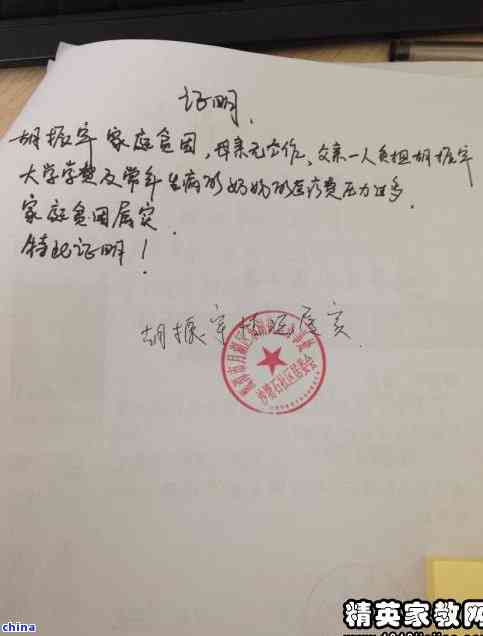 证明
胡振宇 家庭贫困，母亲无工作、父亲一人负担胡振宇
大学学费及常年生病的奶奶的医疗费压力过多.
家庭贫困属实.
特此证明！
胡振宇 属实
沙塘石社区居委会
china
精英家教网